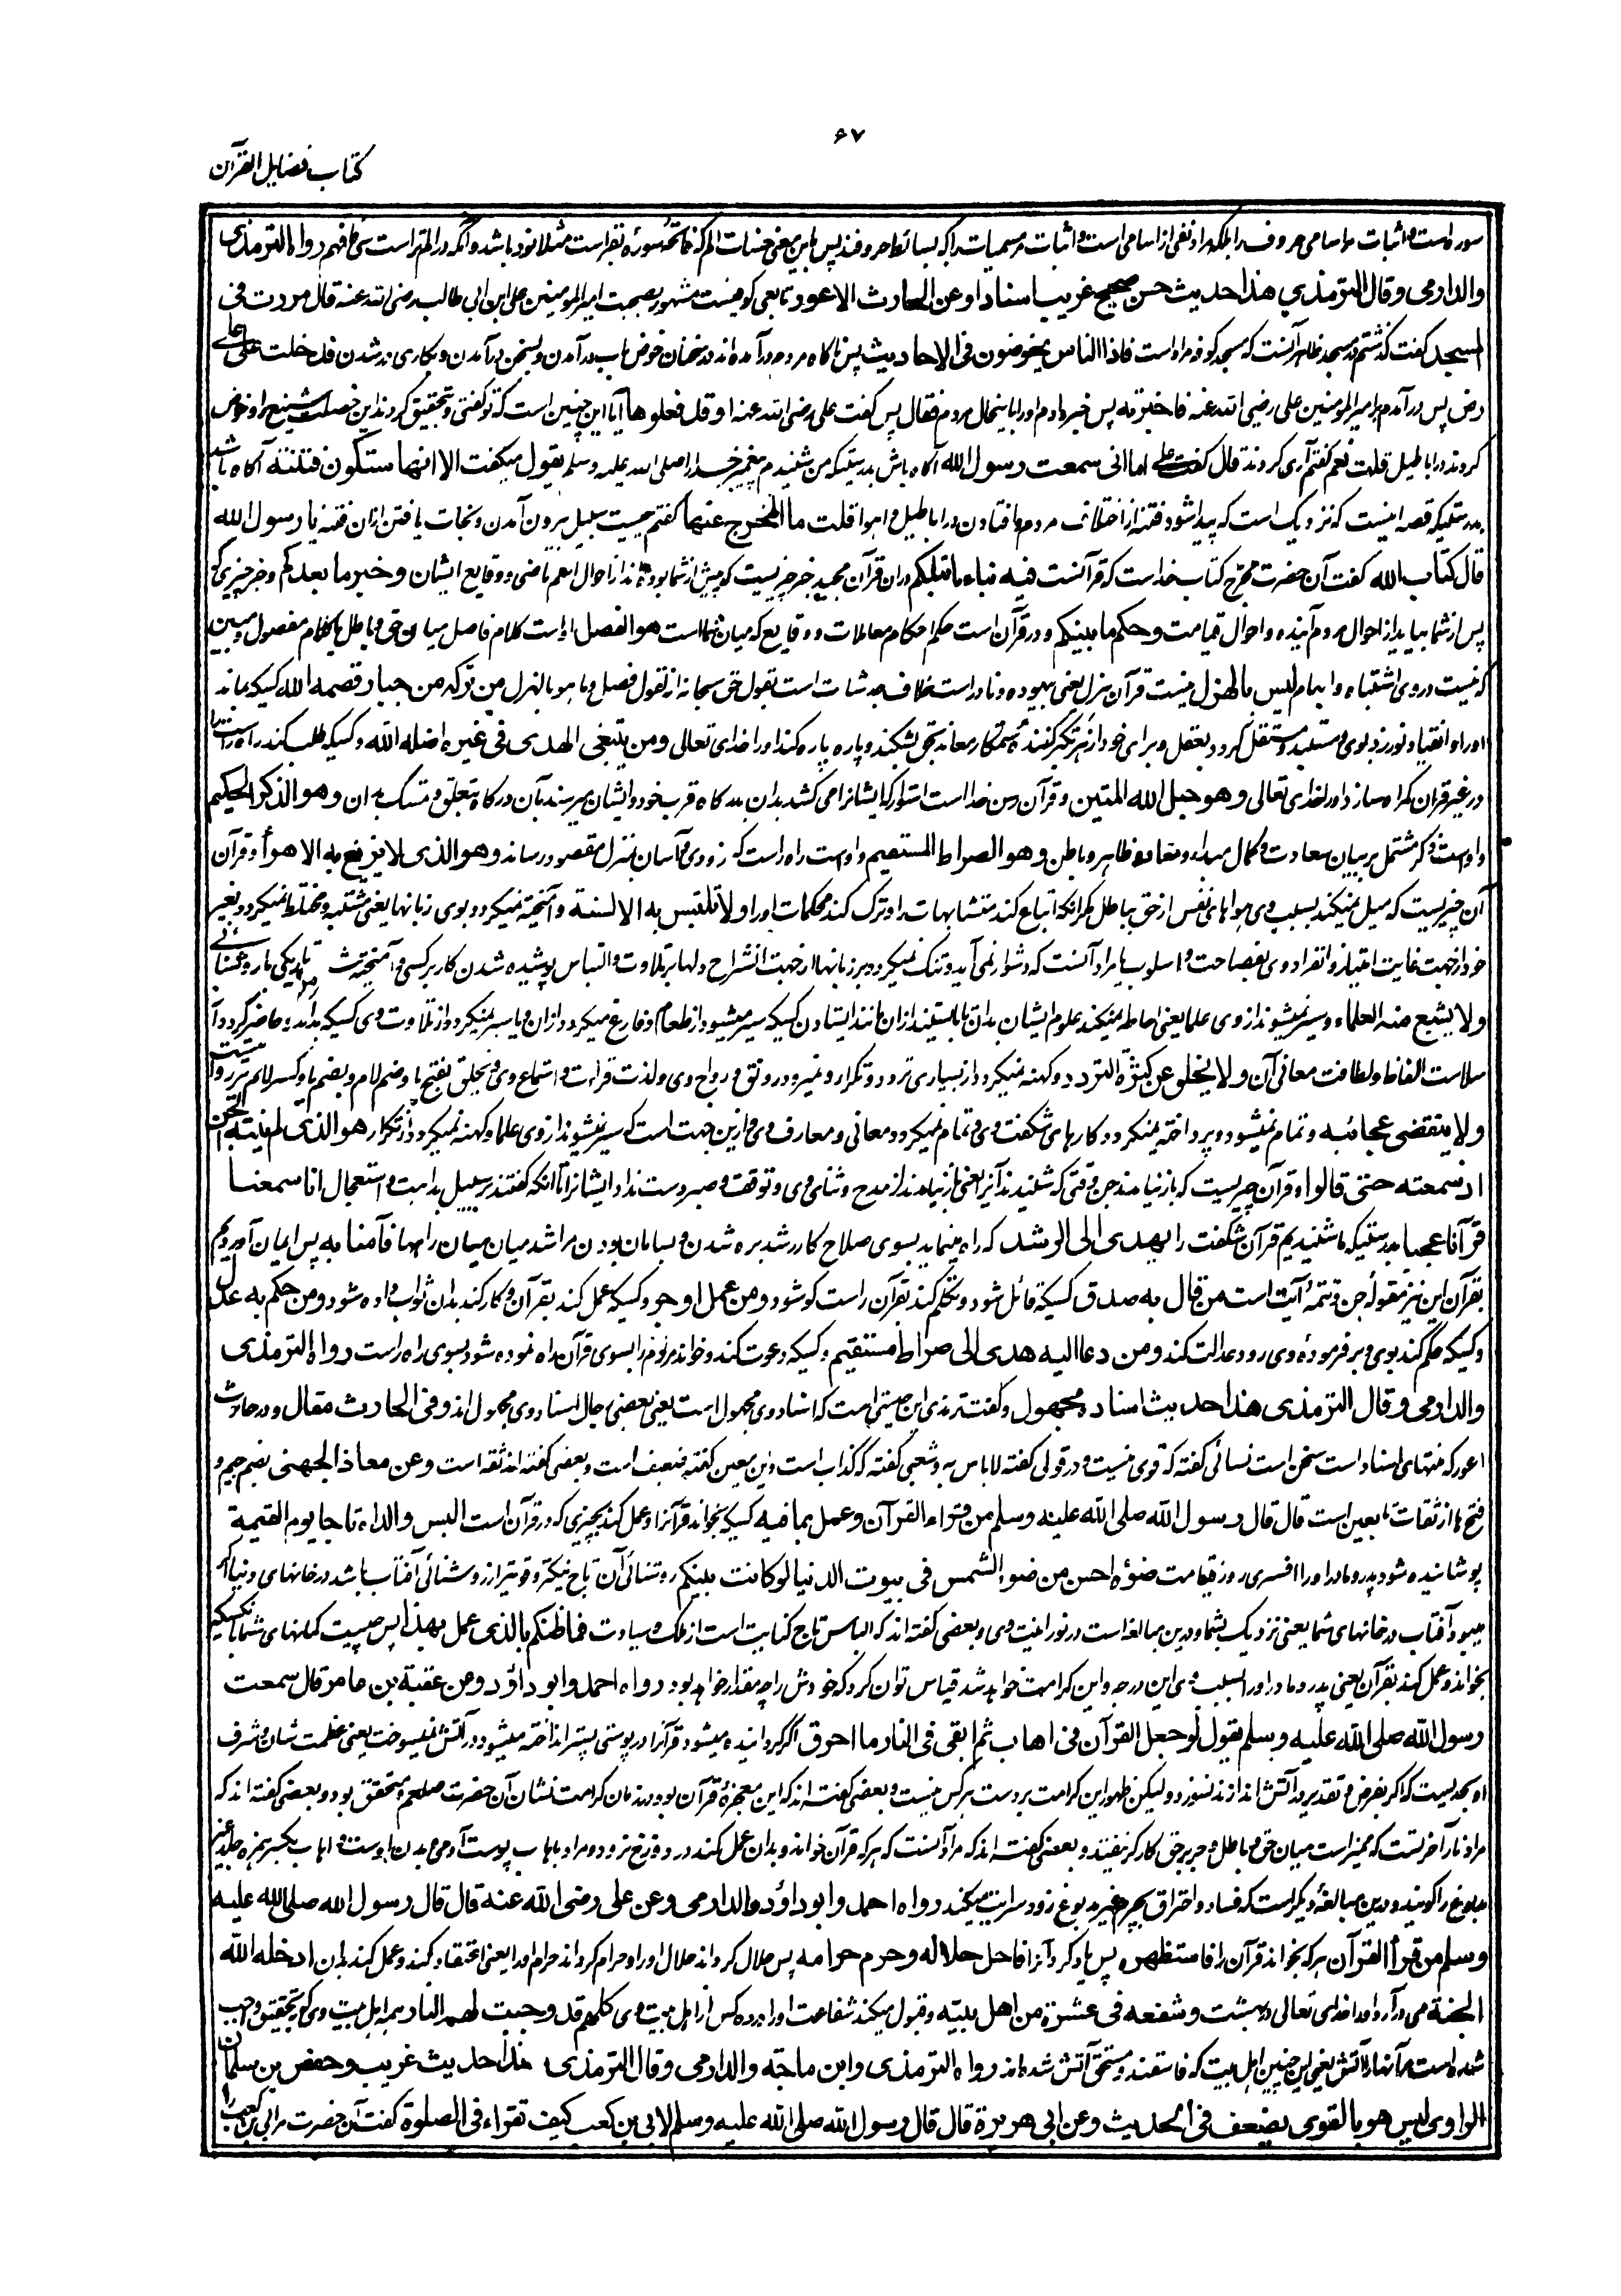 ۶۷
کتاب فضایل القرآن
سوره است و اثبات مر اسامی حروف را بلکه مراد نفی از اسامی است و اثبات مر مسمیات را که بسائط حروفند پس باین معنی حسنات الم که فاتحهٔ سورهٔ بقر است مثلا نود باشد و آنکه در الم تر است سی فافهم رواه الترمذی
والدارمی وقال الترمذی هذا حدیث حسن صحیح غریب اسنادا وعن الحارث الاعور تابعی کوفیست مشهور بصحبت امیر المومنین علی ابن ابی طالب رضی الله عنه قال مررت فی
المسجد گفت گذشتم در مسجد ظاهر آنست که مسجد کوفه مراد است فاذا الناس یخوضون فی الاحادیث پس ناگاه مردم در آمده اند در سخنان خوض باب در آمدن و بسخن در آمدن و بکاری در شدن فدخلت علی علی
رض پس در آمدم بر امیر المومنین علی رضی الله عنه فاخبرته پس خبر دادم او را باینحال مردم فقال پس گفت علی رضی الله عنه او قد فعلوها آیا این چنین است که تو گفتی و بتحقیق کردند این خصلت شنیع را و خوض
کردند در اباطیل قلت نعم گفتم آری کردند قال گفت علی اما انی سمعت رسول الله آگاه باش بدرستیکه من شنیدم پیغمبر خدا را صلی الله علیه وسلم یقول میگفت الا انها ستکون فتنة آگاه باشید
بدرستیکه قصه اینست که نزدیک است که پیدا شود فتنه از اختلاف مردم و افتادن در اباطیل و اهوا قلت ما المخرج عنها گفتم چیست سبیل بیرون آمدن و نجات یافتن ازان فتنه یا رسول الله
قال کتاب الله گفت آن حضرت مخرج کتاب خدا است که قرآنست فیه نباء ما قبلکم دران قرآن مجید خبر چیزیست که پیش از شما بوده اند از احوال امم ماضی و وقایع ایشان وخبر ما بعدکم و خبر چیزی که
پس از شما بیاید از احوال مردم آینده و احوال قیامت وحکم ما بینکم و در قرآن است حکم احکام معاملات و وقایع که میان شما است هو الفصل او است کلام فاصل میان حق و باطل یا کلام مفصول و مبین
که نیست در وی اشتباه و ابهام لیس بالهزل نیست قرآن هزل یعنی بیهوده و نادر است خلاف جد شات است بقول حق سبحانه انه لقول فصل و ما هو بالهزل من ترکه من جبار قصمه الله کسیکه بماند
او را و انقیاد نورزد بوی و مستبد و مستقل گردد بعقل و برای خود از هر تکبر کننده ستمگار معاند بحق بشکند و پاره پاره کند او را خدای تعالی ومن یبتغی الهدی فی غیره اضله الله و کسیکه طلب کند راه راست را
در غیر قرآن گمراه سازد او را خدای تعالی وهو حبل الله المتین و قرآن رسن خدا است استوار که ایشانرا می کشد بدان بدرگاه قرب خود و ایشان میرسند بآن درگاه بتعلق و تمسک بدان وهو الذکر الحکیم
و اوست ذکر مشتمل بر بیان سعادت و کمال مبداء و معاد و ظاهر و باطن وهو الصراط المستقیم و اوست راه راست که زودی و آسان بمنزل مقصود رساند وهو الذی لا یزیغ به الاهوأ و قرآن
آن چیزیست که میل نمیکند بسبب وی هواهای نفس از حق بباطل مگر آنکه اتباع کند متشابهات را و ترک کند محکمات او را ولا تلتبس به الالسنة و آمیخته نمیگردد بوی زبانها یعنی مشتبه و مختلط نمیگردد بغیر
خود از جهت غایت امتیاز و انفراد وی بفصاحت و اسلوب یا مراد آنست که دشوار نمی آید و تنگ نمیگردد بر زبانها از جهت انشراح دلها بر تلاوت و التباس پوشیده شدن کار بر کسی و آمیخته شدن تاریکی بار وشنائی
ولا یشبع منه العلماء و سیر نمیشوند از وی علما یعنی احاطه نمیکند علوم ایشان بدان تا بایستند ازان مانند ایستادن کسیکه سیر میشود از طعام و فارغ میگردد ازان و یا سیر نمیگردد از تلاوت وی کسیکه بداند و حاضر گردد
سلاست الفاظ و لطافت معانی آن ولا یخلق عن کثرة الترد د و کهنه نمیگردد از بسیاری تردد و تکرار و نمیرود رونق و رواج وی و لذت قراءت و استماع وی و یخلق بفتح یا و ضم لام و بضم یا و کسر لام
ولا ینقضی عجائبه و تمام نمیشود و پرداخته نمیگردد کارهای شگفت وی و تمام نمیگردد معانی و معارف وی و ازین جهت است که سیر نمیشوند از وی علما و کهنه نمیگردد از تکرار هو الذی لم تنته الجن
اذ سمعته حتی قالوا و قرآن چیزیست که باز نیامدند جن وقتی که شنیدند آنرا یعنی باز نیامدند از مدح و ثنای وی و توقف و صبر دست نداد ایشانرا تا آنکه گفتند بر سبیل بداهت و استعجال انا سمعنا
قرآنا عجبا بدرستیکه ما شنیدیم قرآن شگفت را یهدی الی الرشد که راه مینماید بسوی صلاح کار رشد بره شدن و بسامان بودن مراشد میان میان راهها فآمنا به پس ایمان آوردیم
بقرآن این نیز مقولهٔ جن و تتمهٔ آیت است من قال به صدق کسیکه قائل شود و تکلم کند بقرآن راست گو شود ومن عمل به اوجر و کسیکه عمل کند بقرآن و کار کند بدان ثواب داده شود ومن حکم به عدل
و کسیکه حکم کند بوی و بر فرمودهٔ وی رود عدالت کند ومن دعا الیه هدی الی صراط مستقیم و کسیکه دعوت کند و خواند مردم را بسوی قرآن راه نموده شود بسوی راه راست رواه الترمذی
والدارمی وقال الترمذی هذا حدیث اسناده مجهول و گفت ترمذی این حدیثی است که اسناد وی مجهول است یعنی بعضی رجال اسناد وی مجهول اند وفی الحارث مقال و در حارث
اعور که منتهای اسناد است سخن است نسائی گفته که قوی نیست و در قولی گفته لا باس به و شعبی گفته که کذاب است و ابن معین گفته ضعیف است و بعضی گفته اند ثقه است وعن معاذ الجهنی بضم جیم و
فتح ها از ثقات تابعین است قال قال رسول الله صلی الله علیه وسلم من قراء القرآن وعمل بما فیه کسیکه بخواند قرآنرا و عمل کند بچیزی که در قرآن است البس والداه تاجا یوم القیمة
پوشانیده شود پدر و مادر او را افسری روز قیامت ضوؤه احسن من ضوء الشمس فی بیوت الدنیا لو کانت بینکم روشنائی آن تاج نیکوتر و قویتر از روشنائی آفتاب باشد در خانهای دنیا اگر
میبود آفتاب در خانهای شما یعنی نزدیک بشما و درین مبالغه است در نورانیت وی و بعضی گفته اند که الباس تاج کنایت است از ملک و سیادت فما ظنکم بالذی عمل بهذا پس چیست گمانهای شما بکسیکه
بخواند و عمل کند بقرآن یعنی پدر و مادر او را بسبب وی این درجه و این کرامت خواهد شد قیاس توان کرد که خودش را چه مقدار خواهد بود رواه احمد وابو داؤد وعن عقبة بن عامر قال سمعت
رسول الله صلی الله علیه وسلم یقول لو جعل القرآن فی اهاب ثم القی فی النار ما احرق اگر گردانیده میشود قرآنرا در پوستی پستر انداخته میشود در آتش نمیسوخت یعنی عظمت شان و شرف
او بحدیست که اگر بفرض و تقدیر در آتش اندازند نسوزد و لیکن ظهور این کرامت بر دست هر کس نیست و بعضی گفته اند که این معجزهٔ قرآن بود در زمان کرامت نشان آن حضرت صلعم و متحقق بود و بعضی گفته اند که
مراد نار آخرتست که ممیز است میان حق و باطل و جز بر حق کارگر نیفتد و بعضی گفته اند که مراد آنست که هر که قرآن خواند و بدان عمل کند در دوزخ نرود و مراد باهاب پوست آدمی و بدن اوست و اهاب بکسر همزه جلد غیر
مدبوغ را گویند و درین مبالغهٔ دیگرست که فساد و احتراق بچرم غیر مدبوغ زود سرایت میکند رواه احمد وابوداؤد والدارمی وعن علی رضی الله عنه قال قال رسول الله صلی الله علیه
وسلم من قرأ القرآن هر که بخواند قرآن را فاستظهره پس یاد گرد آنرا فاحل حلاله وحرم حرامه پس حلال گرداند حلال او را و حرام گرداند حرام او را یعنی اعتقاد کند و عمل کند بدان ادخله الله
الجنة می در آرد او را خدای تعالی در بهشت وشفعه فی عشرة من اهل بیته و قبول میکند شفاعت او را در ده کس از اهل بیت وی کلهم قد وجبت لهم النار همه اهل بیت وی که بتحقیق واجب
شده است مر آنها را آتش یعنی این چنین اهل بیت که فاسقند و مستحق آتش شده اند رواه الترمذی وابن ماجة والدارمی وقال الترمذی هذا حدیث غریب وحفص بن سلمان
الراوی لیس هو بالقوی یضعف فی الحدیث وعن ابی هریرة قال قال رسول الله صلی الله علیه وسلم لابی بن کعب کیف تقراء فی الصلوة گفت آن حضرت مر ابی بن کعب را